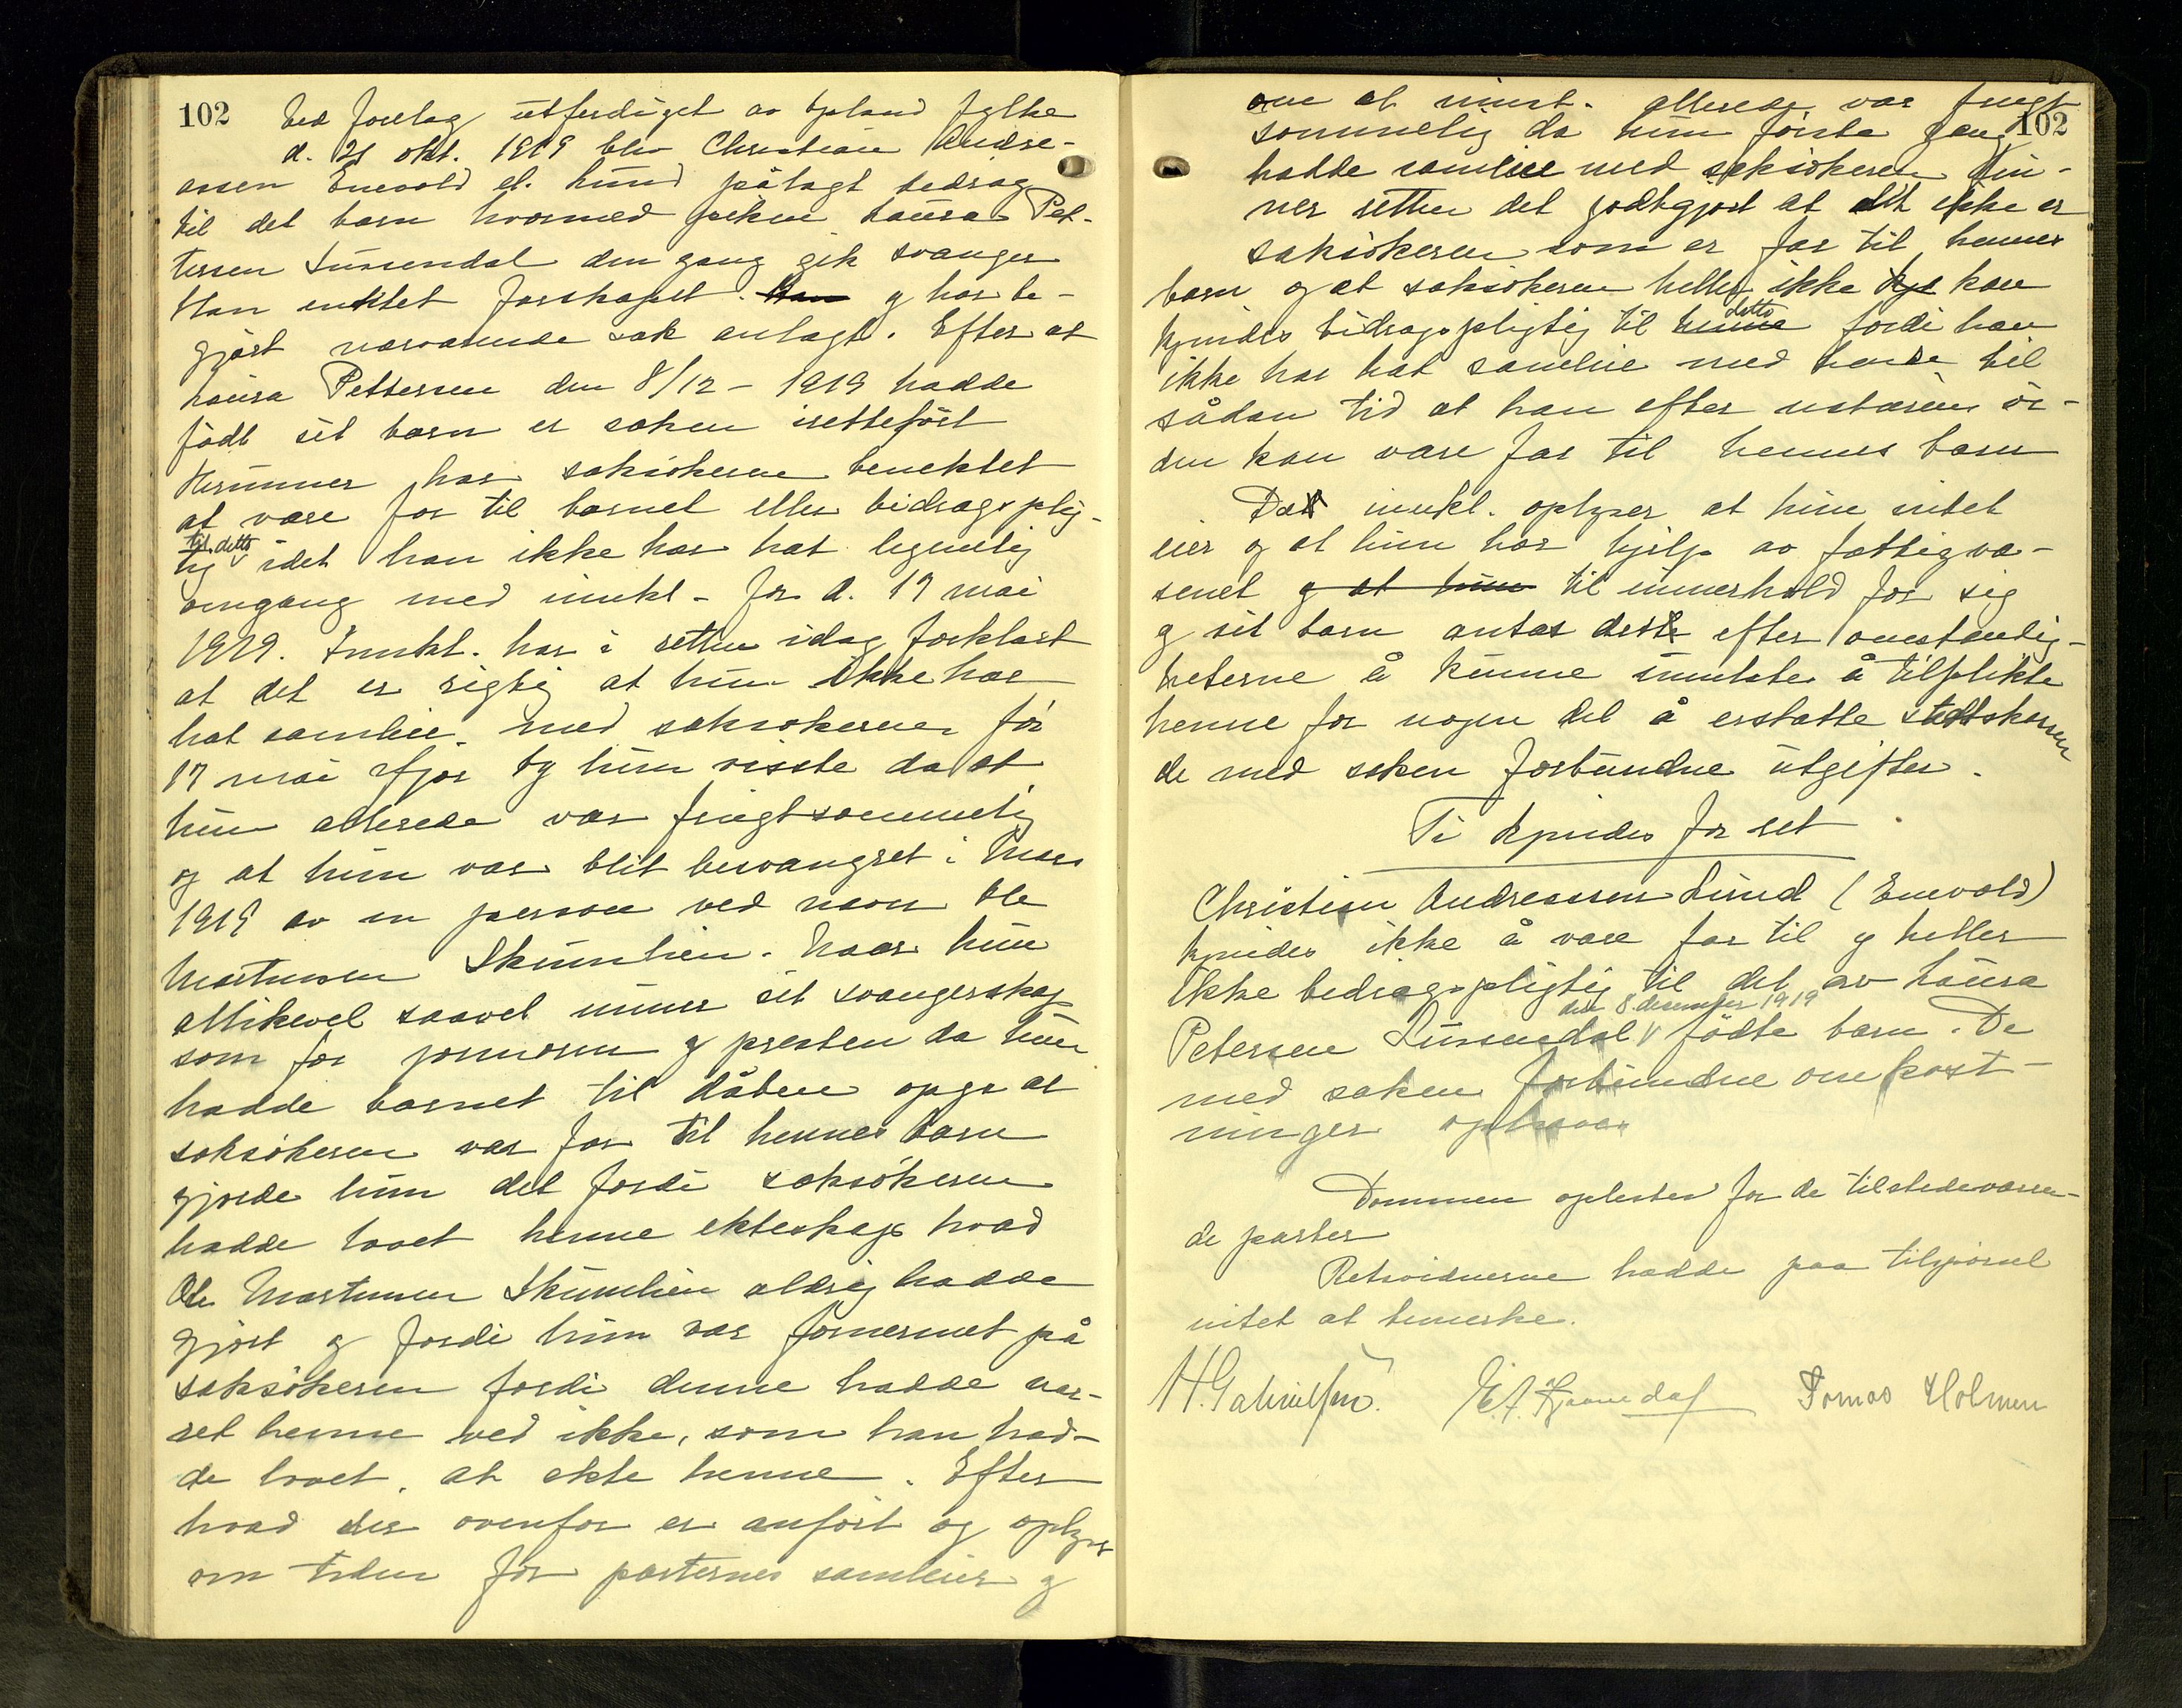 102
Ved forelæg utferdiget av Opland fylke
d. 21 okt. 1919 blev Christian Andre-
assen Enevold el. Lund pålagt bidrag
til det barn hvormed piken Laura Pet-
tersen Lunendal den gang gik svanger
Han nektet farskapet. Han og har be-
gjært nærværende sak anlagt. Efter at
Laura Pettersen den 8/12 - 1919 hadde
født sit barn er saken iretteført
Herunder har saksøkeren benektet
at være far til barnet eller bidragsplig-
til dette
tig v idet han ikke har hat legemlig
omgang med innkl. før d. 17 mai
1919. Innkl. har i retten idag forklart
at det er rigtig at hun ikke har
hat samleie med saksøkeren før
17 mai ifjor og hun visste da at
hun allerede var frugtsommelig
og at hun var blit besvangret i Mars
1919 av en person ved navn Ole
Martinsen Skumlien. Naar hun
allikevel saavel under sit svangerskap
som for jormoren og presten da hun
hadde barnet til dåben opga at
saksøkeren var far til hennes barn
gjorde hun det fordi saksøkeren
hadde lovet henne ekteskap hvad
Ole Martinsen Skumlien aldrig hadde
gjort og fordi hun var fornermet på
saksøkeren fordi denne hadde nar-
ret henne ved ikke, som han had-
de lovet, at ekte henne. Efter
hvad der ovenfor er anført og oplyst
om tiden for parternes samleier og
102
om at innst. allerede var frugt
sommelig da hun første gang
hadde samleie med saksøkeren fin-
ner retten det godtgjort at det ikke er
saksøkeren som er far til hennes
barn og at saksøkeren heller ikke kje kan
dette
kjendes bidragspligtig til henne fordi han
ikke har hat samleie med henne til
sådan tid at han efter naturens or-
den kan være far til hennes barn
Da innkl. oplyser at hun intet
eier og at hun har hjelp av fattigvæ-
senet og at hun til underhold for sig
og sit barn antas det efter omstendig-
heterne å kunne undlates å tilplikte
henne for nogen del å erstatte statskassen
de med saken forbundne utgifter.
Ti kjendes for ret
Christian Andreassen Lund (Enevold)
kjendes ikke å være far til og heller
ikke bidragspligtig til det av Laura
den 8. desember 1919
Petersen Lunendal v fødte barn. De
med saken forbundne omkost-
ninger ophæves
Dommen oplestes for de tilstedeværen-
de parter
Retsvidnerne hadde paa tilspørsel
intet at bemerke.
H. Gabrielsen. Tomas Holmen